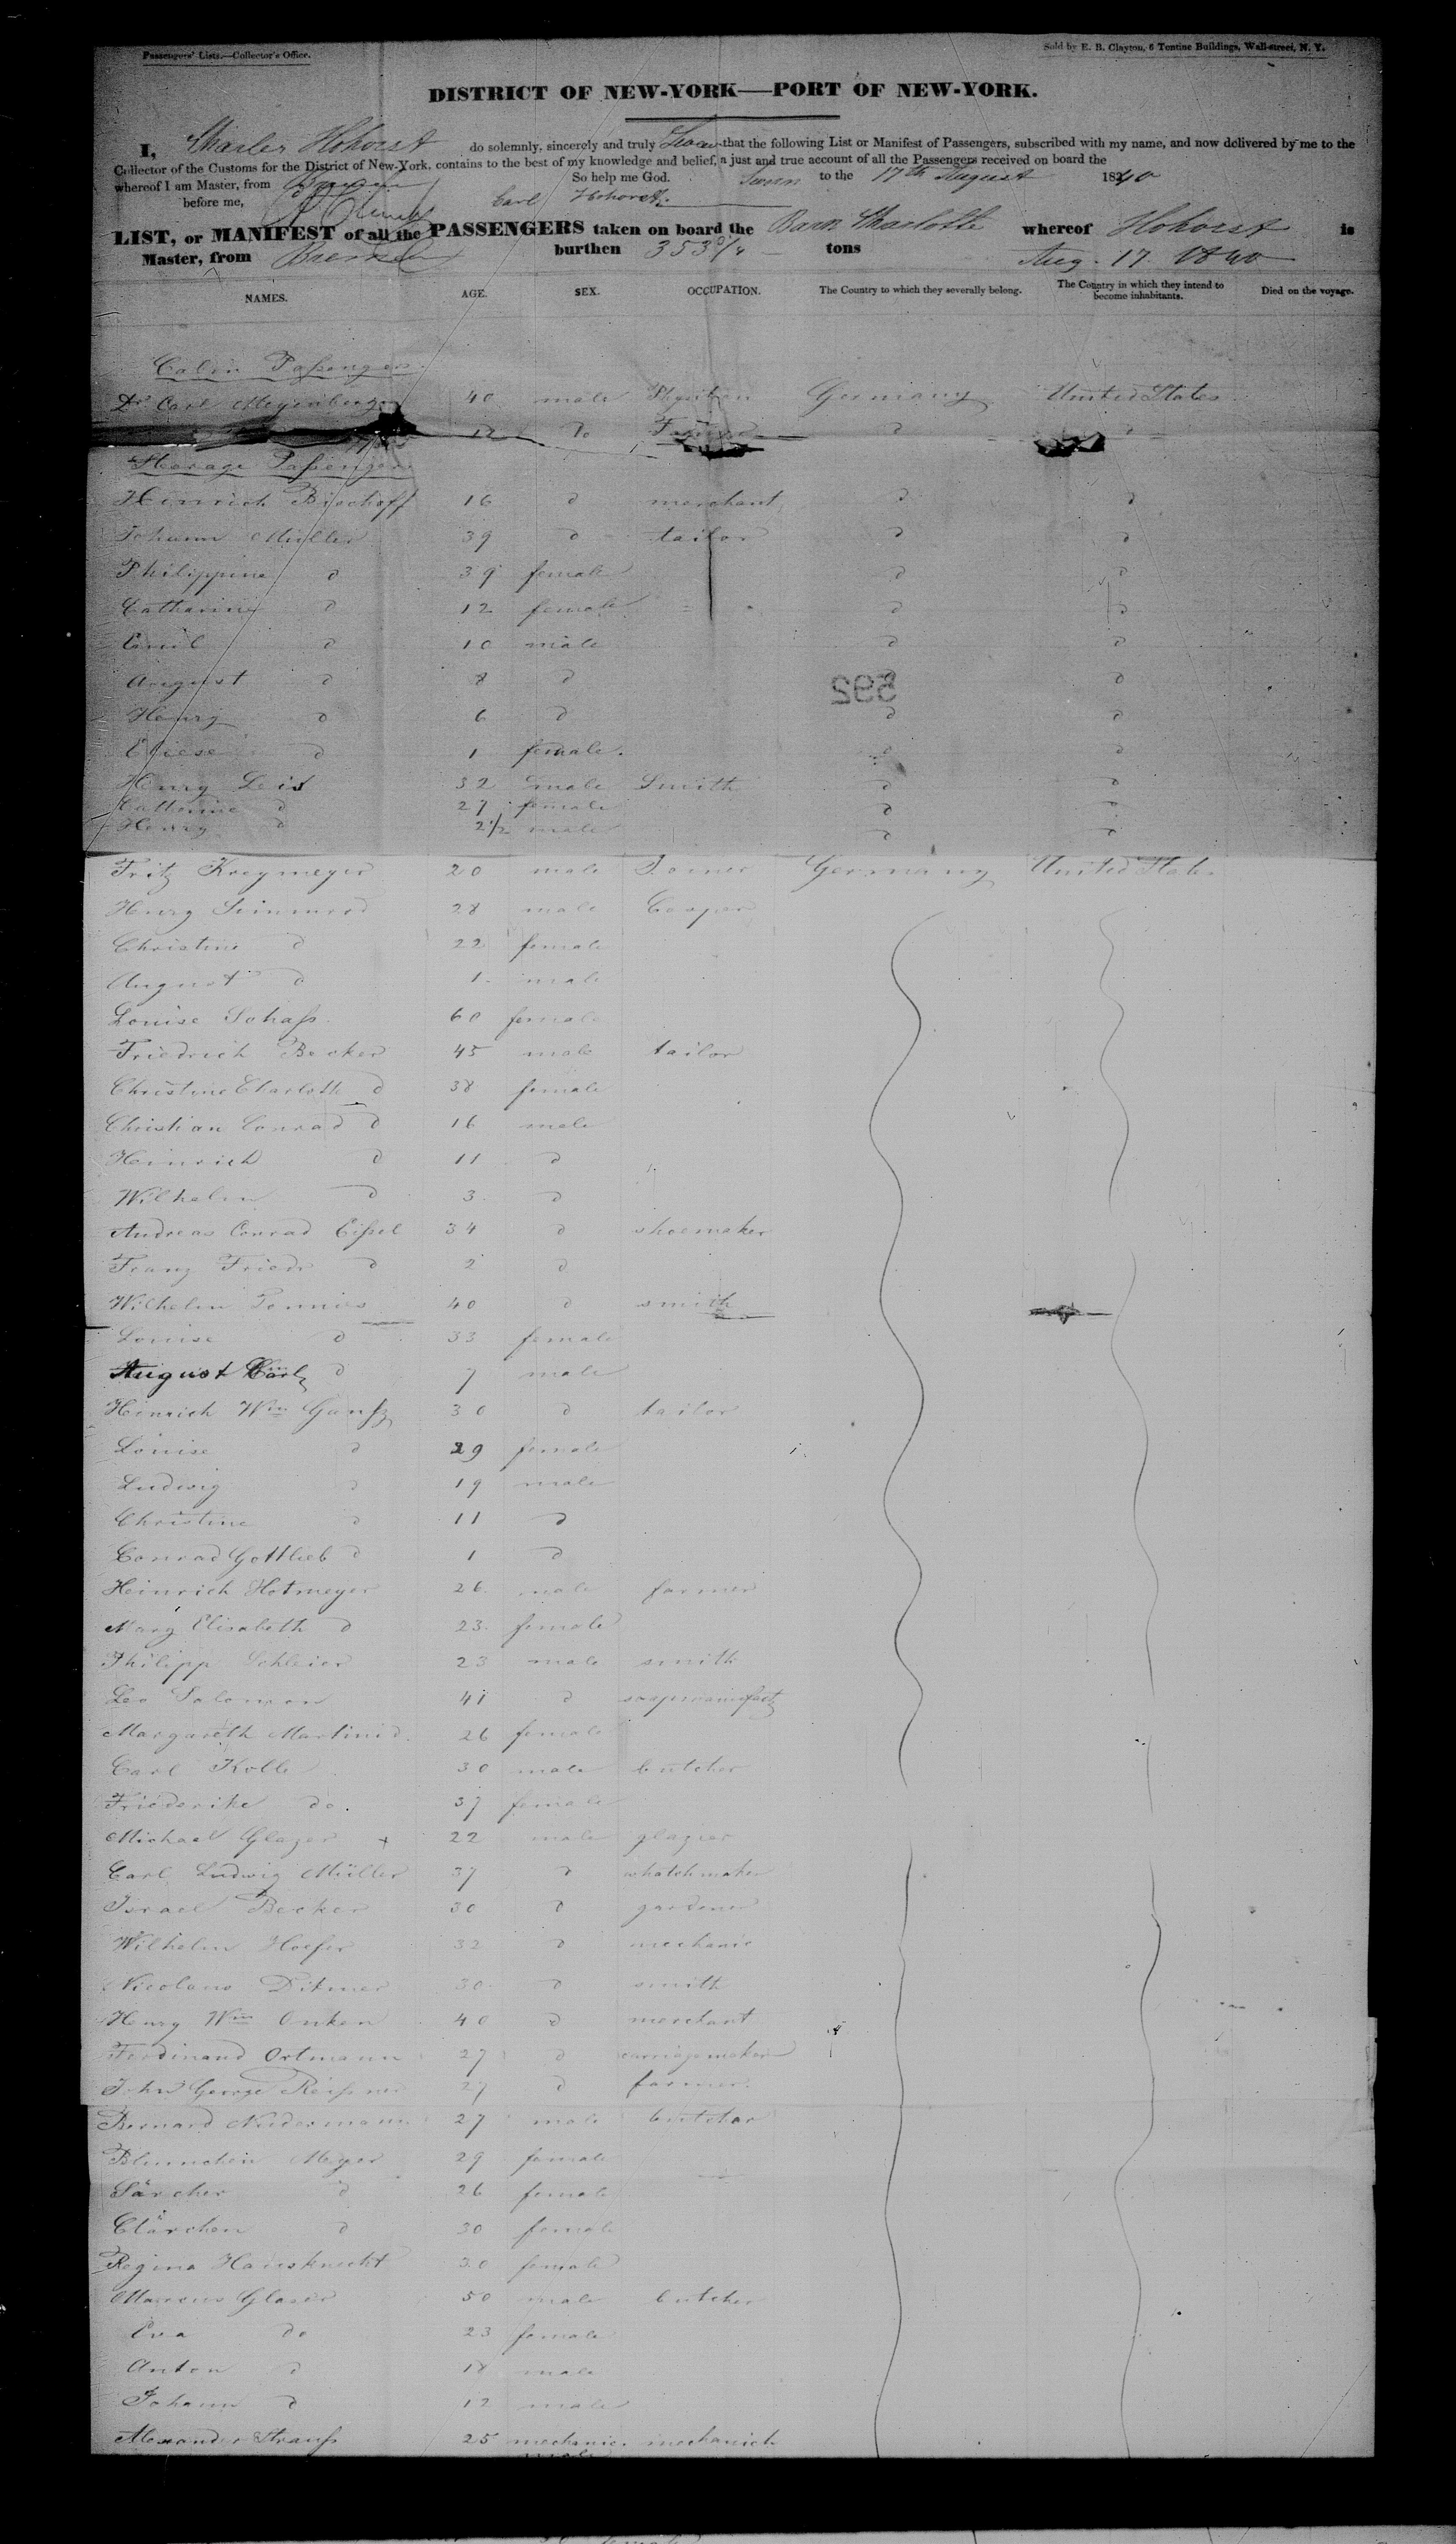 Passengers' Lists.—Collector's Office.
Sold by E. B. Clayton, 6 Tontine Buildings, Wall-street, N. Y.
DISTRICT OF NEW-YORK—PORT OF NEW-YORK.
I, Charles Hohorst do solemnly, sincerely and truly Swear that the following List or Manifest of Passengers, subscribed with my name, and now delivered by me to the
Collector of the Customs for the District of New-York, contains to the best of my knowledge and belief, a just and true account of all the Passengers received on board the
whereof I am Master, from Bremen So help me God. Sworn to the 17th August 1840
before me, Carl Hohorst
LIST, or MANIFEST of all the PASSENGERS taken on board the Bark Charlotte whereof Hohorst is
Master, from Bremen burthen 353 tons Aug. 17. 1840
NAMES. AGE. SEX. OCCUPATION. The Country to which they severally belong. The Country in which they intend to become inhabitants. Died on the voyage.
Cabin Passengers
Dr Carl Meyenberger 40 male Germany United States
12 do d d
Sterage Passengers
Hinrich Bischoff 16 d merchant d d
Johann Müller 39 d tailor d d
Philippine d 39 female d d
Catharine d 12 female d d
Emil d 10 male d d
August d 8 d d
592
Henry d 6 d d d
Eliese d 1 female. d d
Henry Leist 32 male Smith d d
Catherine d 27 female d d
Henry d 2 1/2 male d d
Fritz Kreymeyer 20 male Joiner Germany United States
Henry 28 male Cooper
Christine d 22 female
August d 1. male
Louise Schaß 60 female
Friedrich Becker 45 male tailor
Christine Charlotte d 38 female
Christian Conrad d 16 male
Heinrich d 11 d
Wilhelm d 3 d
Andreas Conrad Eißel 34 d shoemaker
Franz Friedr d 2 d
Wilhelm Tonnies 40 d smith
Louise d 33 female
August Carl d 7 male
Hinrich Wm Ganß 30 d tailor
Louise d 29 female
Ludwig d 19 male
Christine d 11 d
Conrad Gottlieb d 1 d
Heinrich Hotmeyer 26. male farmer
Marg Elisabeth d 23. female
Philipp Schleier 23 male smith
Leo Salomon 41 d soapmanufact
Margareth Martini d. 26 female
Carl Kolle 30 male butcher
Friederike do. 37 female
Michael Glazer + 22 male glazier
Carl Ludwig Müller 37 d whatchmaker
Israel Becker 30 d gardener
Wilhelm Hoefer 32 d mechanic
Nicolaus Ditmer 30 d smith
Henry Wm Onken 40 d merchant
Ferdinand Ortmann 27 d carriagemaker
John George Reißner 27 d farmer.
Bernard Niedermann 27 male butcher
Blumchen Meyer 29 female
Särcher d 26 female
Clärchen d 30 female
Regina Hausknecht 30 female
Marcus Glaser 50 male butcher
Eva do 23 female
Anton d 18 male
Johann d 12 male
Alexander Strauß 25 mechanic. mechanick
male